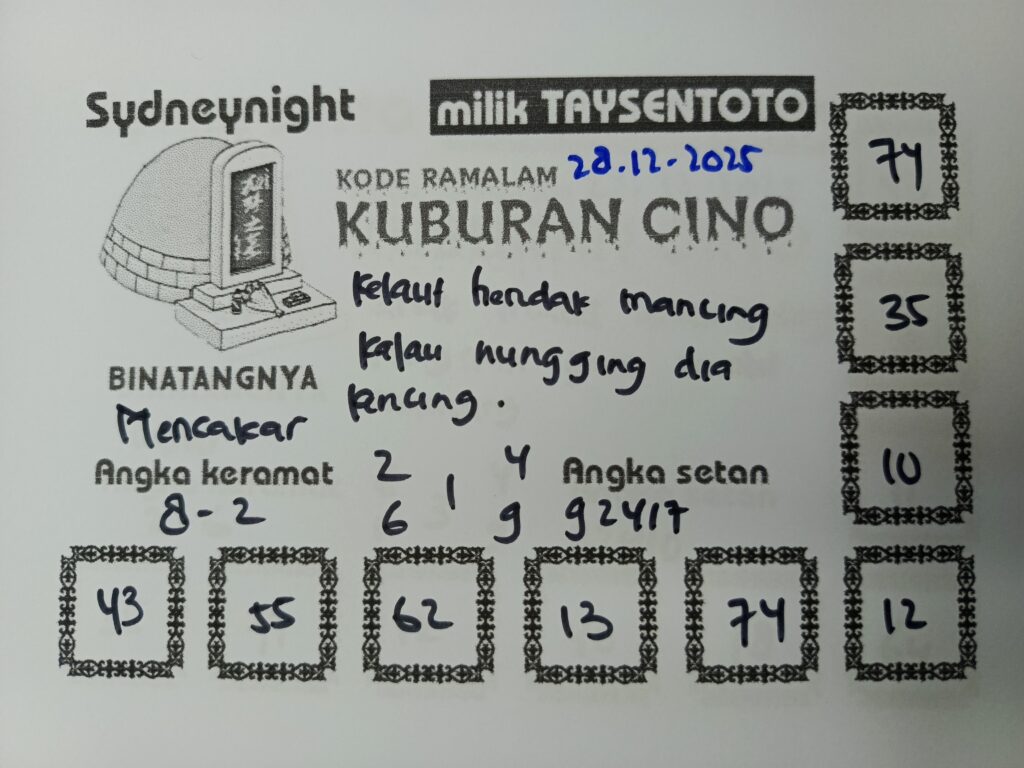 Sydneynight
milik TAYSENTOTO
KODE RAMALAM 28.12-2025
KUBURAN CINO
Kelaut hendak mancing
Kalau nungging dia
kencing.
BINATANGNYA
Mencakar
Angka keramat
8-2
2 4
1
6 9
Angka setan
92417
74
35
10
43 55 62 13 74 12